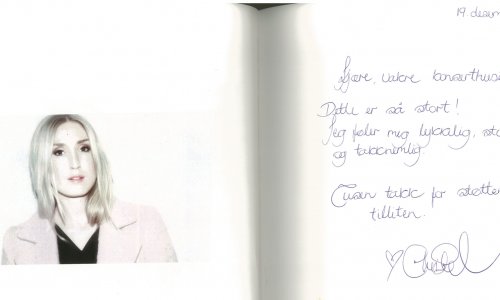 19. desem
Kjære, vakre konserthuse
Dette er så stort!
Jeg føler meg lykkelig, sto
og takknemlig
Tusen takk for støtte
tilliten.